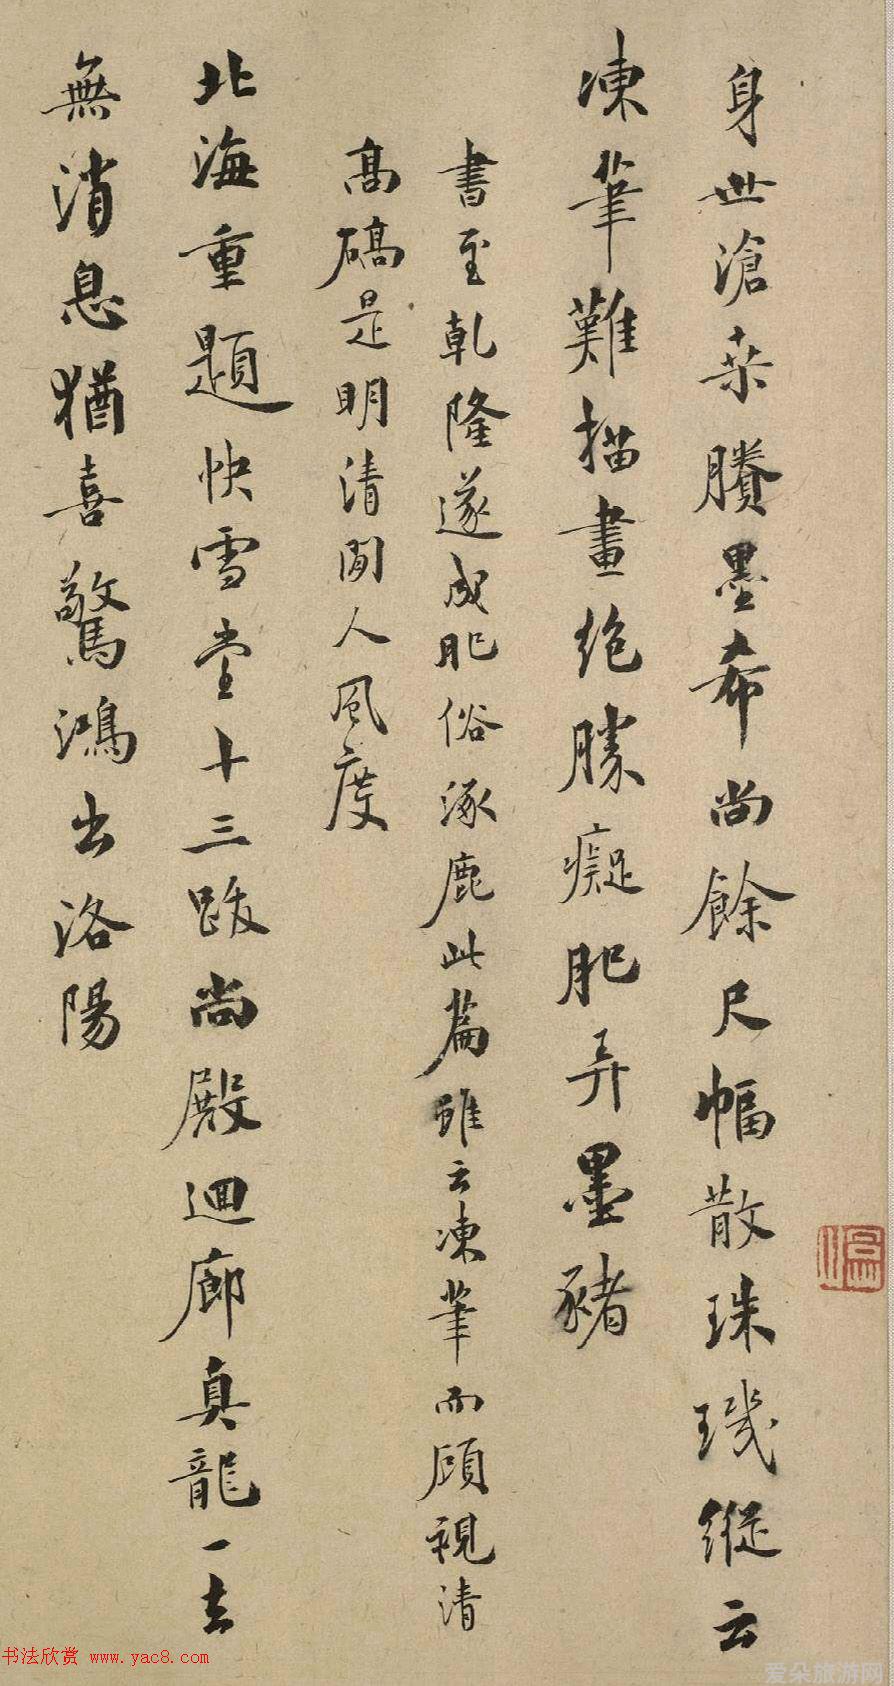 身世滄桑賸墨希尚餘尺幅散珠璣縱云
凍筆難描畫絶勝癡肥弄墨豬
書至乾隆遂成肥俗涿鹿此篇雖云凍筆而顧視清
高礄是明清間人風度
北海重題快雪堂十三跋尚殿迴廊真龍一去
無消息猶喜驚鴻出洛陽
书法欣赏 www.yac8.com
爱朵旅游网